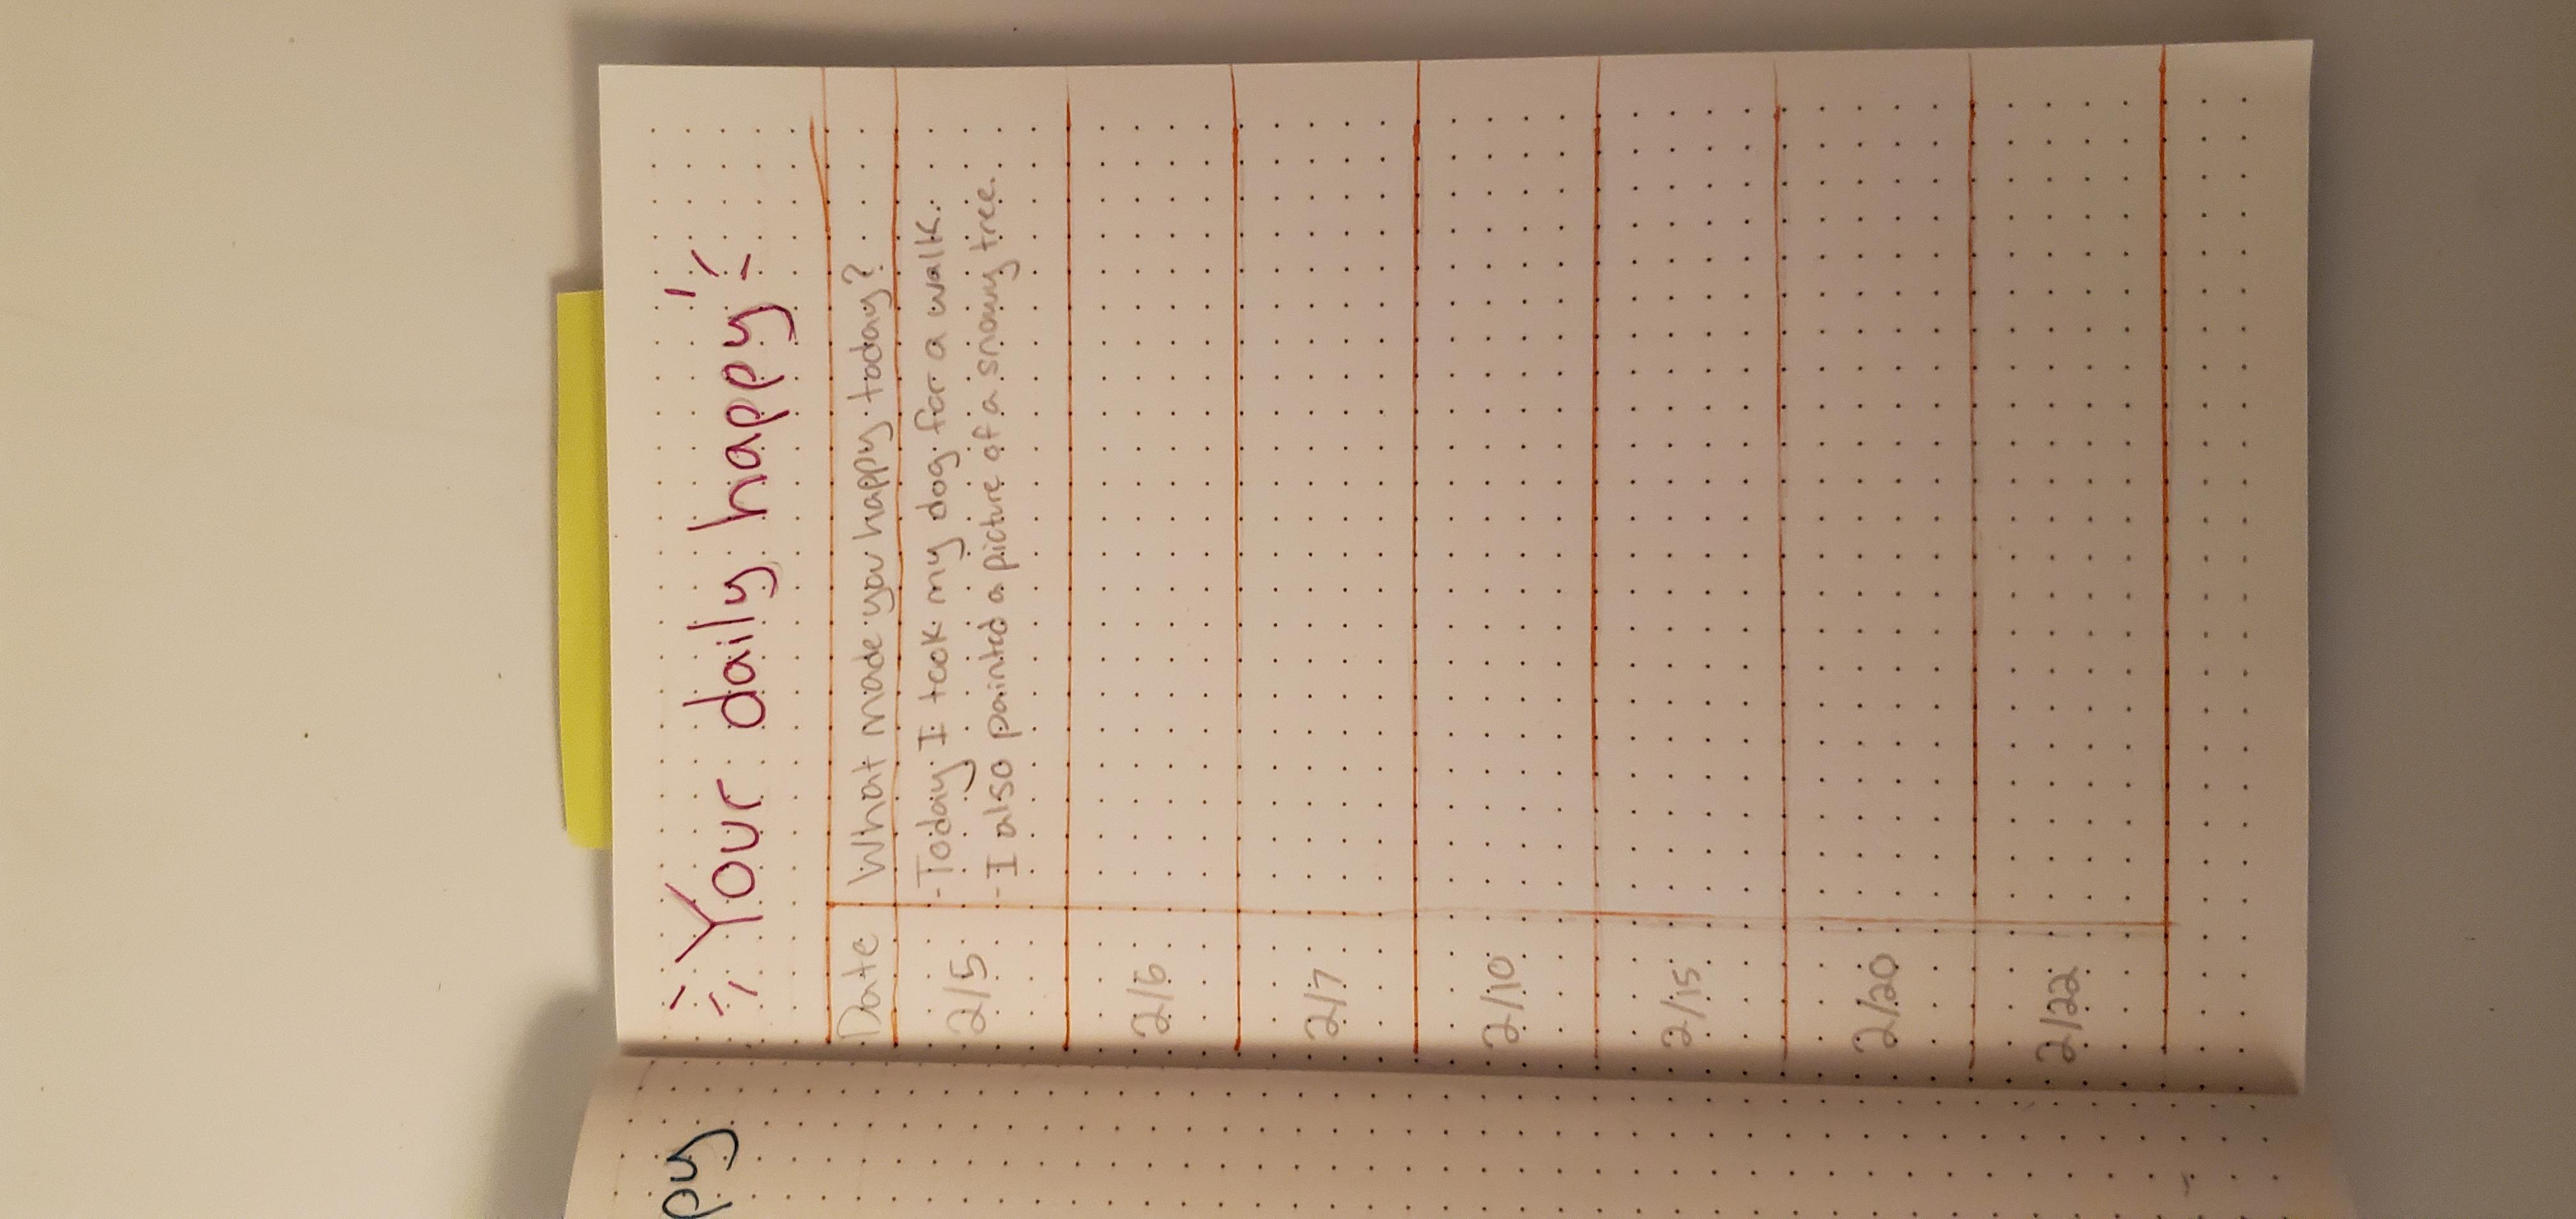 Your daily happy
Date What made you happy today?
2/5 -Today I took my dog for a walk.
-I also painted a picture of a snowy tree.
2/6
2/7
2/10
2/15
2/20
2/22
py